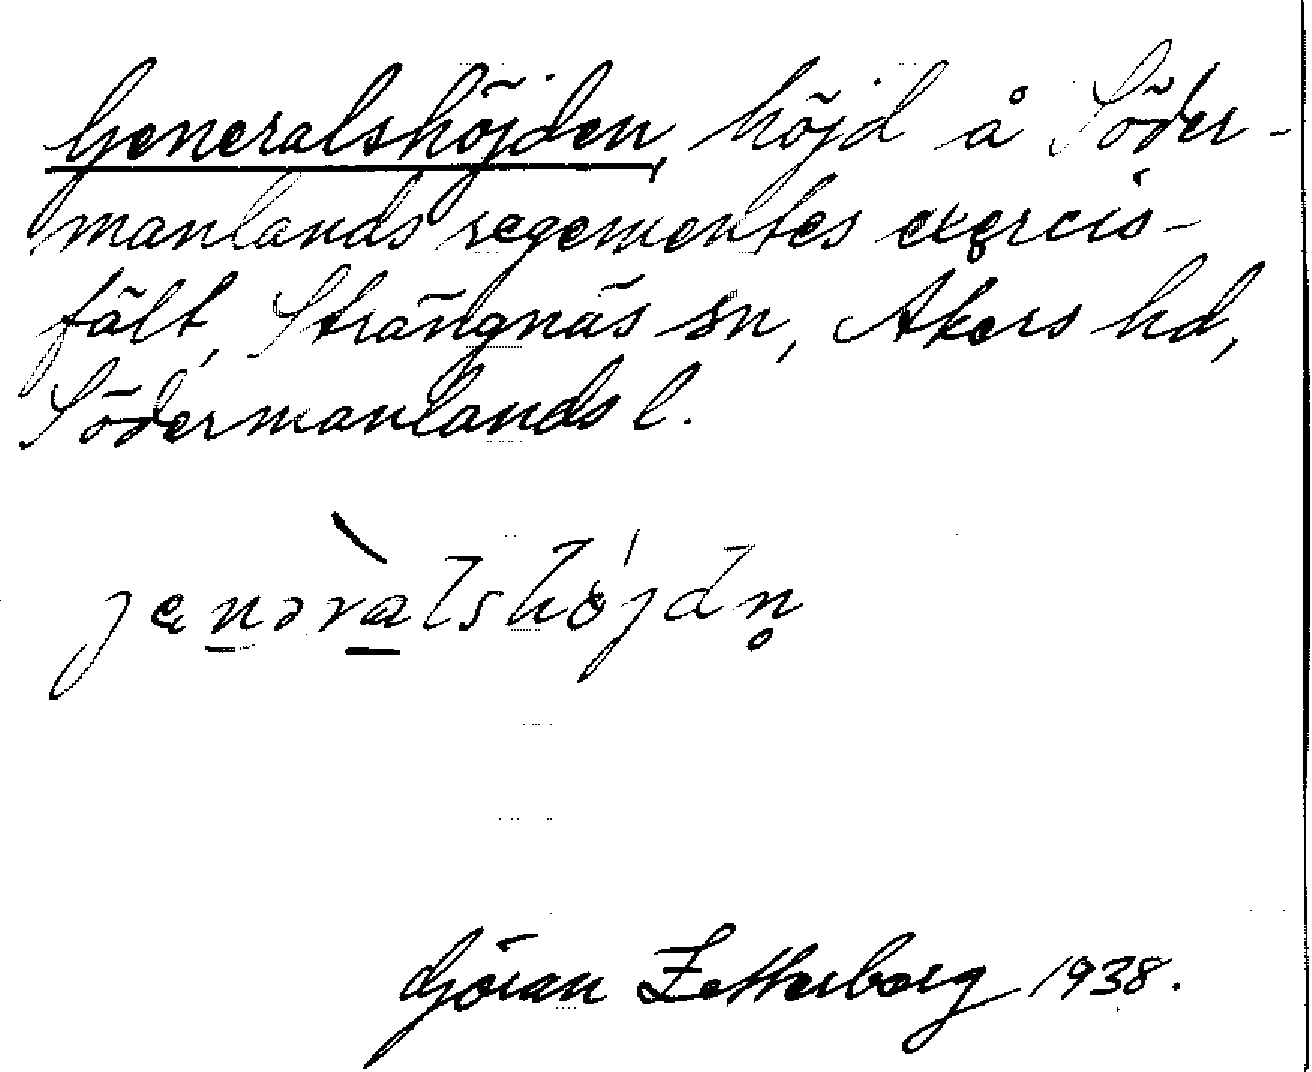 Generalshöjden, höjd å Söder-
manlands regementes exercis-
fält, Strängnäs sn, Åkers hd,
Södermanlands l.
Göran Zetterborg 1938.